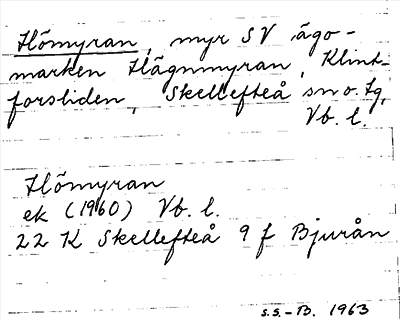 Hömyran, myr SV ägo-
marken Hägnmyran, Klint-
forsliden, Skellefteå sn o. tg,
Vb. l.
Hömyran
ek (1960) Vb. l.
22 K Skellefteå 9 f Bjurån
S.S.-B. 1963